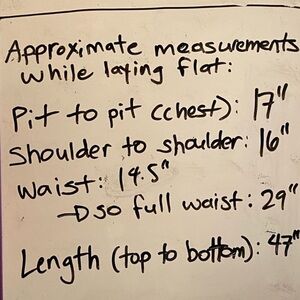 Approximate measurements
while laying flat:
Pit to pit (chest): 17"
Shoulder to shoulder: 16"
Waist: 14.5"
→ so full waist: 29"
Length (top to bottom): 47"